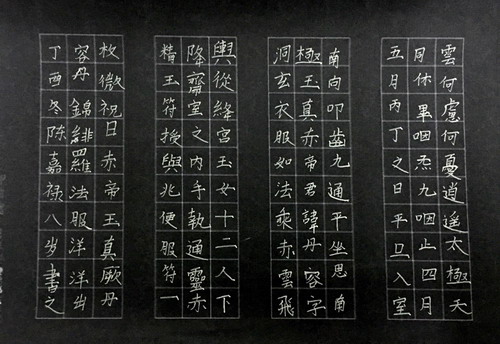 雲何慮何憂逍遙太極天
同休畢咽炁九咽止四月
五月丙丁之日平旦入室
南向叩齒九通平坐思南
極玉真赤帝君諱丹容字
洞玄衣服如法乘赤雲飛
輿從絳宮玉女十二人下
降齋室之內手執通靈赤
精玉符授與兆便服符一
枚微祝日赤帝玉真厥丹
容丹錦緋羅法服洋洋出
丁酉冬陈嘉禄八岁書之